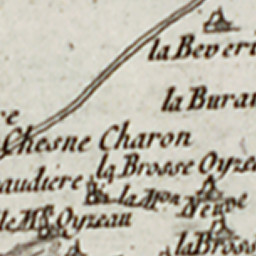 la Beveri
la Buran
re
Chesne Charon
la Brosse Oyzea
audiere
la Mon Neuve
le Mᵉ Oyzeau
la Bross